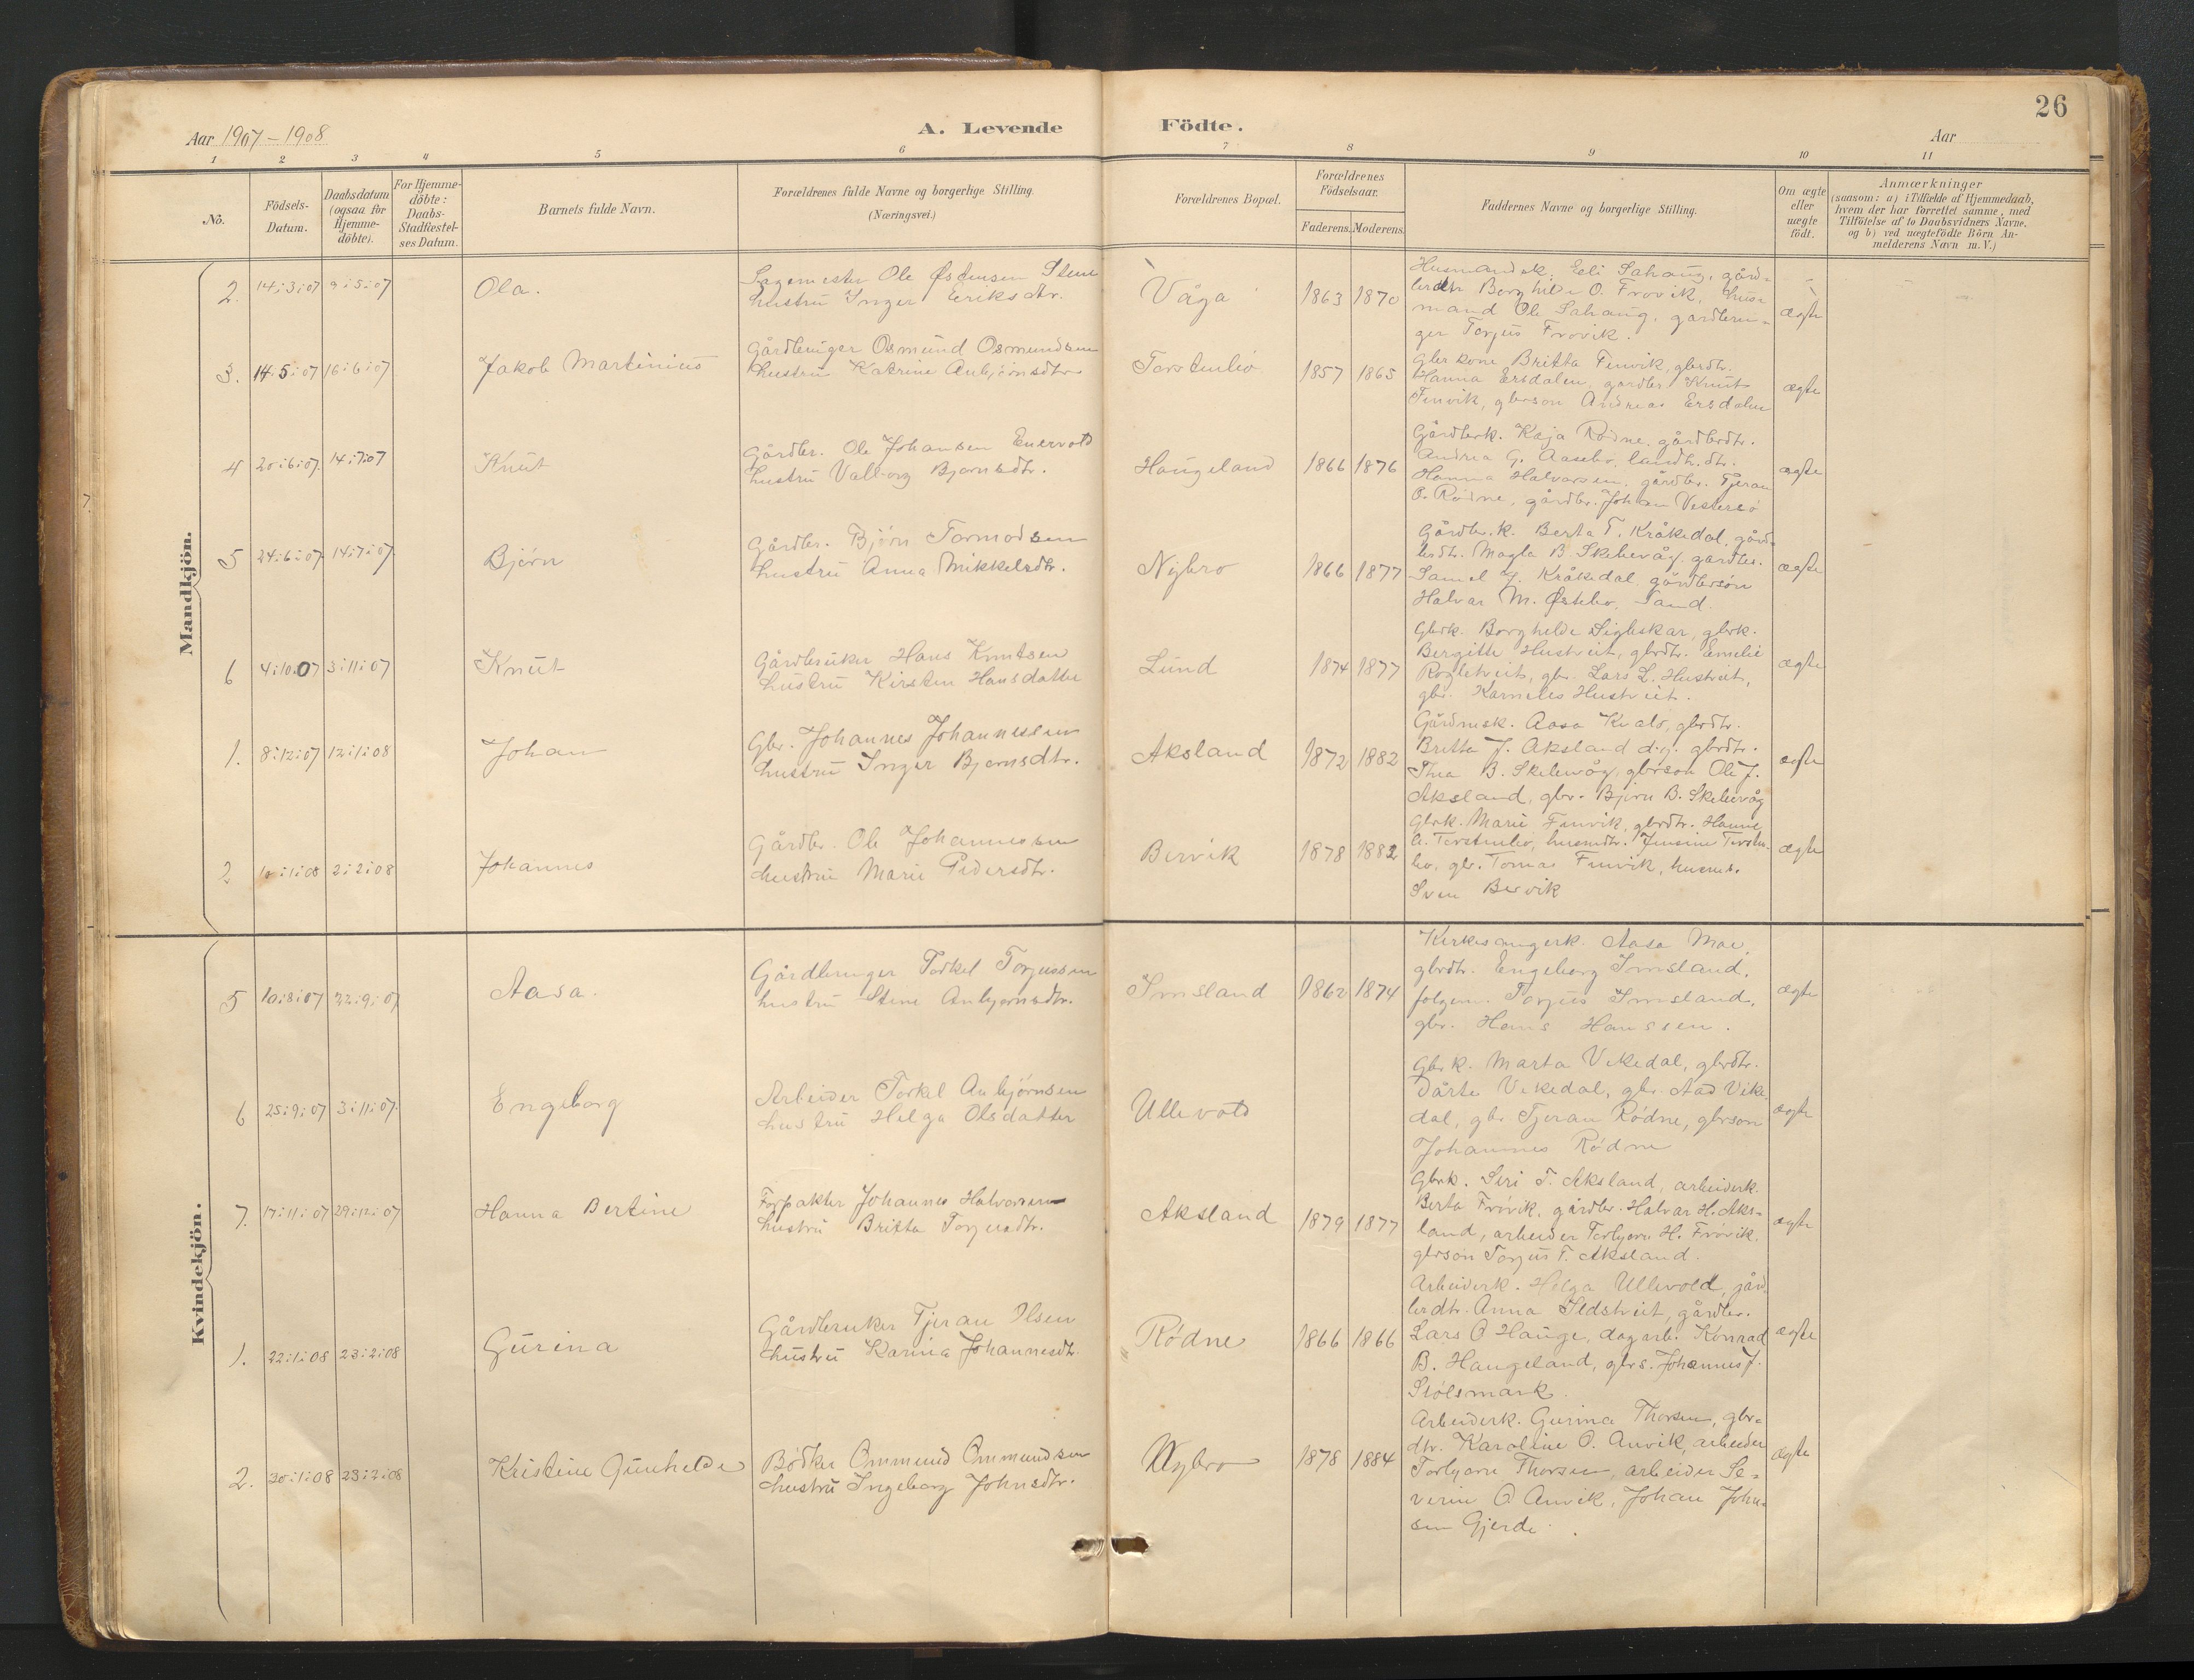 26
Aar 1907 – 1908
A. Levende Födte.
Aar
1 2 3 4 5 6 7 8 9 10 11
No.
Födsels-Datum.
Daabsdatum (ogsaa for Hjemme-döbte).
For Hjemme-döbte: Daabs-Stadfæstel-ses Datum.
Barnets fulde Navn.
Forældrenes fulde Navne og borgerlige Stilling.
(Næringsvei.)
Forældrenes Bopæl.
Forældrenes Födselsaar.
Faderens. Moderens.
Faddernes Navne og borgerlige Stilling.
Om ægte eller uægte födt.
Anmærkninger
(saasom: a) i Tilfælde af Hjemmedaab,
hvem der har forrettet samme, med
Tilföielse af to Daabsvidners Navne.
og b) ved uægtefödte Börn An-
melderens Navn m. V.)
Mandkjön.
2. 14:3:07 9:5:07 Ola.
Sagmester Ole Østensen
hustru Inger Eriksdtr.
Våga 1863 1870
Husmandsk. Eli Sahaug, gård-
brdtr Borghilde O. Frovik, hus-
mand Ole Sahaug, gardbru-
ger Torjus Frovik.
ægte
3. 14:5:07 16:6:07 Jakob Martinius
Gårdbruger Osmund Osmundsen
hustru Katrine Anbjörnsdtr
Torstenbö 1857 1865
Gbr kone Britta Finvik, gbrdtr.
Hanna Ersdalen, gårdbr Knut
Finvik, gbrson Andreas Ersdalen
ægte
4 20:6:07. 14:7:07 Knut
Gårdbr. Ole Johansen Enervold
hustru Valborg Bjørnsdtr.
Haugeland 1866 1876
Gårdbrk. Kaja Rødne, gårdbrdtr.
Andrea G. Aasebø, landh.dtr.
Hanna Halvorsen, gårdbr. Tjeran
O. Rødne, gårdbr. Johan Vestersø
ægte
5 24:6:07. 14:7:07. Bjørn
Gårdbr. Bjørn Tormodsen
hustru Anna Mikkelsdtr.
Nybro 1866 1877
Gårdbr.k. Berta T. Kråkedal, gård-
brdtr. Magla B. Skelevåg, gardbr.
Samel J. Kråkedal, gårdbrsøn
Halvar M. Østebø, Sand.
ægte
6 4:10:07 3:11:07 Knut
Gårdbruker Hans Knutsen
hustru Kirsten Hansdatter
Lund 1874 1877
Gbrk. Borghilde Digleskar, gbrk.
Bergitte Hustveit, gbrdtr. Emelie
Rogletveit, gbr. Lars L. Hustveit,
gbr. Karneles Hustveit.
ægte
1. 8:12:07 12:1:08 Johan
Gbr. Johannes Johannessen
hustru Inger Bjørnsdtr.
Aksland 1872 1882
Gårdmsk. Aasa Kvalo, gbrdtr.
Britta J. Aksland d.y. gbrdtr.
Thea B. Skelevåg, gbrson Ole J.
Aksland, gbr. Bjørn B. Skelevåg
ægte
2 10:1:08 2:2:08 Johannes
Gårdbr. Ole Johannessen
hustru Marie Pedersdtr.
Bervik 1878 1882
Gbrk. Marie Finvik, gbrdtr. Hanne
A. Torstenbø, husmdtr. Jensine Torsten-
bø, gbr. Tomas Finvik, husmd.
Sven Bervik
ægte
Kvindekjön.
5 10:8:07 22:9:07 Aasa.
Gårdbruger Torkel Torjussen
hustru Stine Anbjørnsdtr.
Imsland 1862 1874
Kirkesangerk. Aasa Moe,
gbrdtr. Engeborg Imsland,
folgem. Torjus Imsland,
gbr. Hans Hanssen.
ægte
6 25:9:07 3:11:07. Engeborg
Arbeider Torkel Anbjørnsen
hustru Helga Olsdatter
Ullevold
Gbrk. Marta Vikedal, gbrdtr.
Dårte Vikedal, gbr. Aad Vike-
dal, gbr Tjeran Rødne, gbrson
Johannes Rødne
ægte
7. 17:11:07 29:12:07 Hanna Bertine
Forpakter Johannes Halvorsen
hustru Britta Torjersdtr.
Aksland 1879 1877
Gbrk. Siri T. Aksland, arbeiderk.
Berta Frøvik, gårdbr. Halvar H. Aks-
land, arbeider Torbjørn H. Frøvik,
gbrson Torjus T. Aksland.
ægte
1. 22:1:08 23:2:08 Gurina
Gårdbruker Tjeran Olsen
hustru Karina Johannesdtr.
Rødne 1866 1866
Arbeiderk. Helga Ullevold, gård-
brdtr. Anna Ildstveit, gårdbr.
Lars O Hauge, dagarb. Konrad
B. Haugeland, gbrs. Johannes J.
Stølsmark.
ægte
2. 20:1:08 23:2:08 Kristine Gunhilde
Bødker Ommund Ommundsen
hustru Ingeborg Johnsdtr.
Nybro 1878 1884
Arbeiderk. Gurina Thorsen, gbr-
dtr. Karoline O. Anvik, arbeider
Torbjørn Thorsen, arbeider Se-
verin O Anvik, Johan John-
sen Gjerde.
ægte